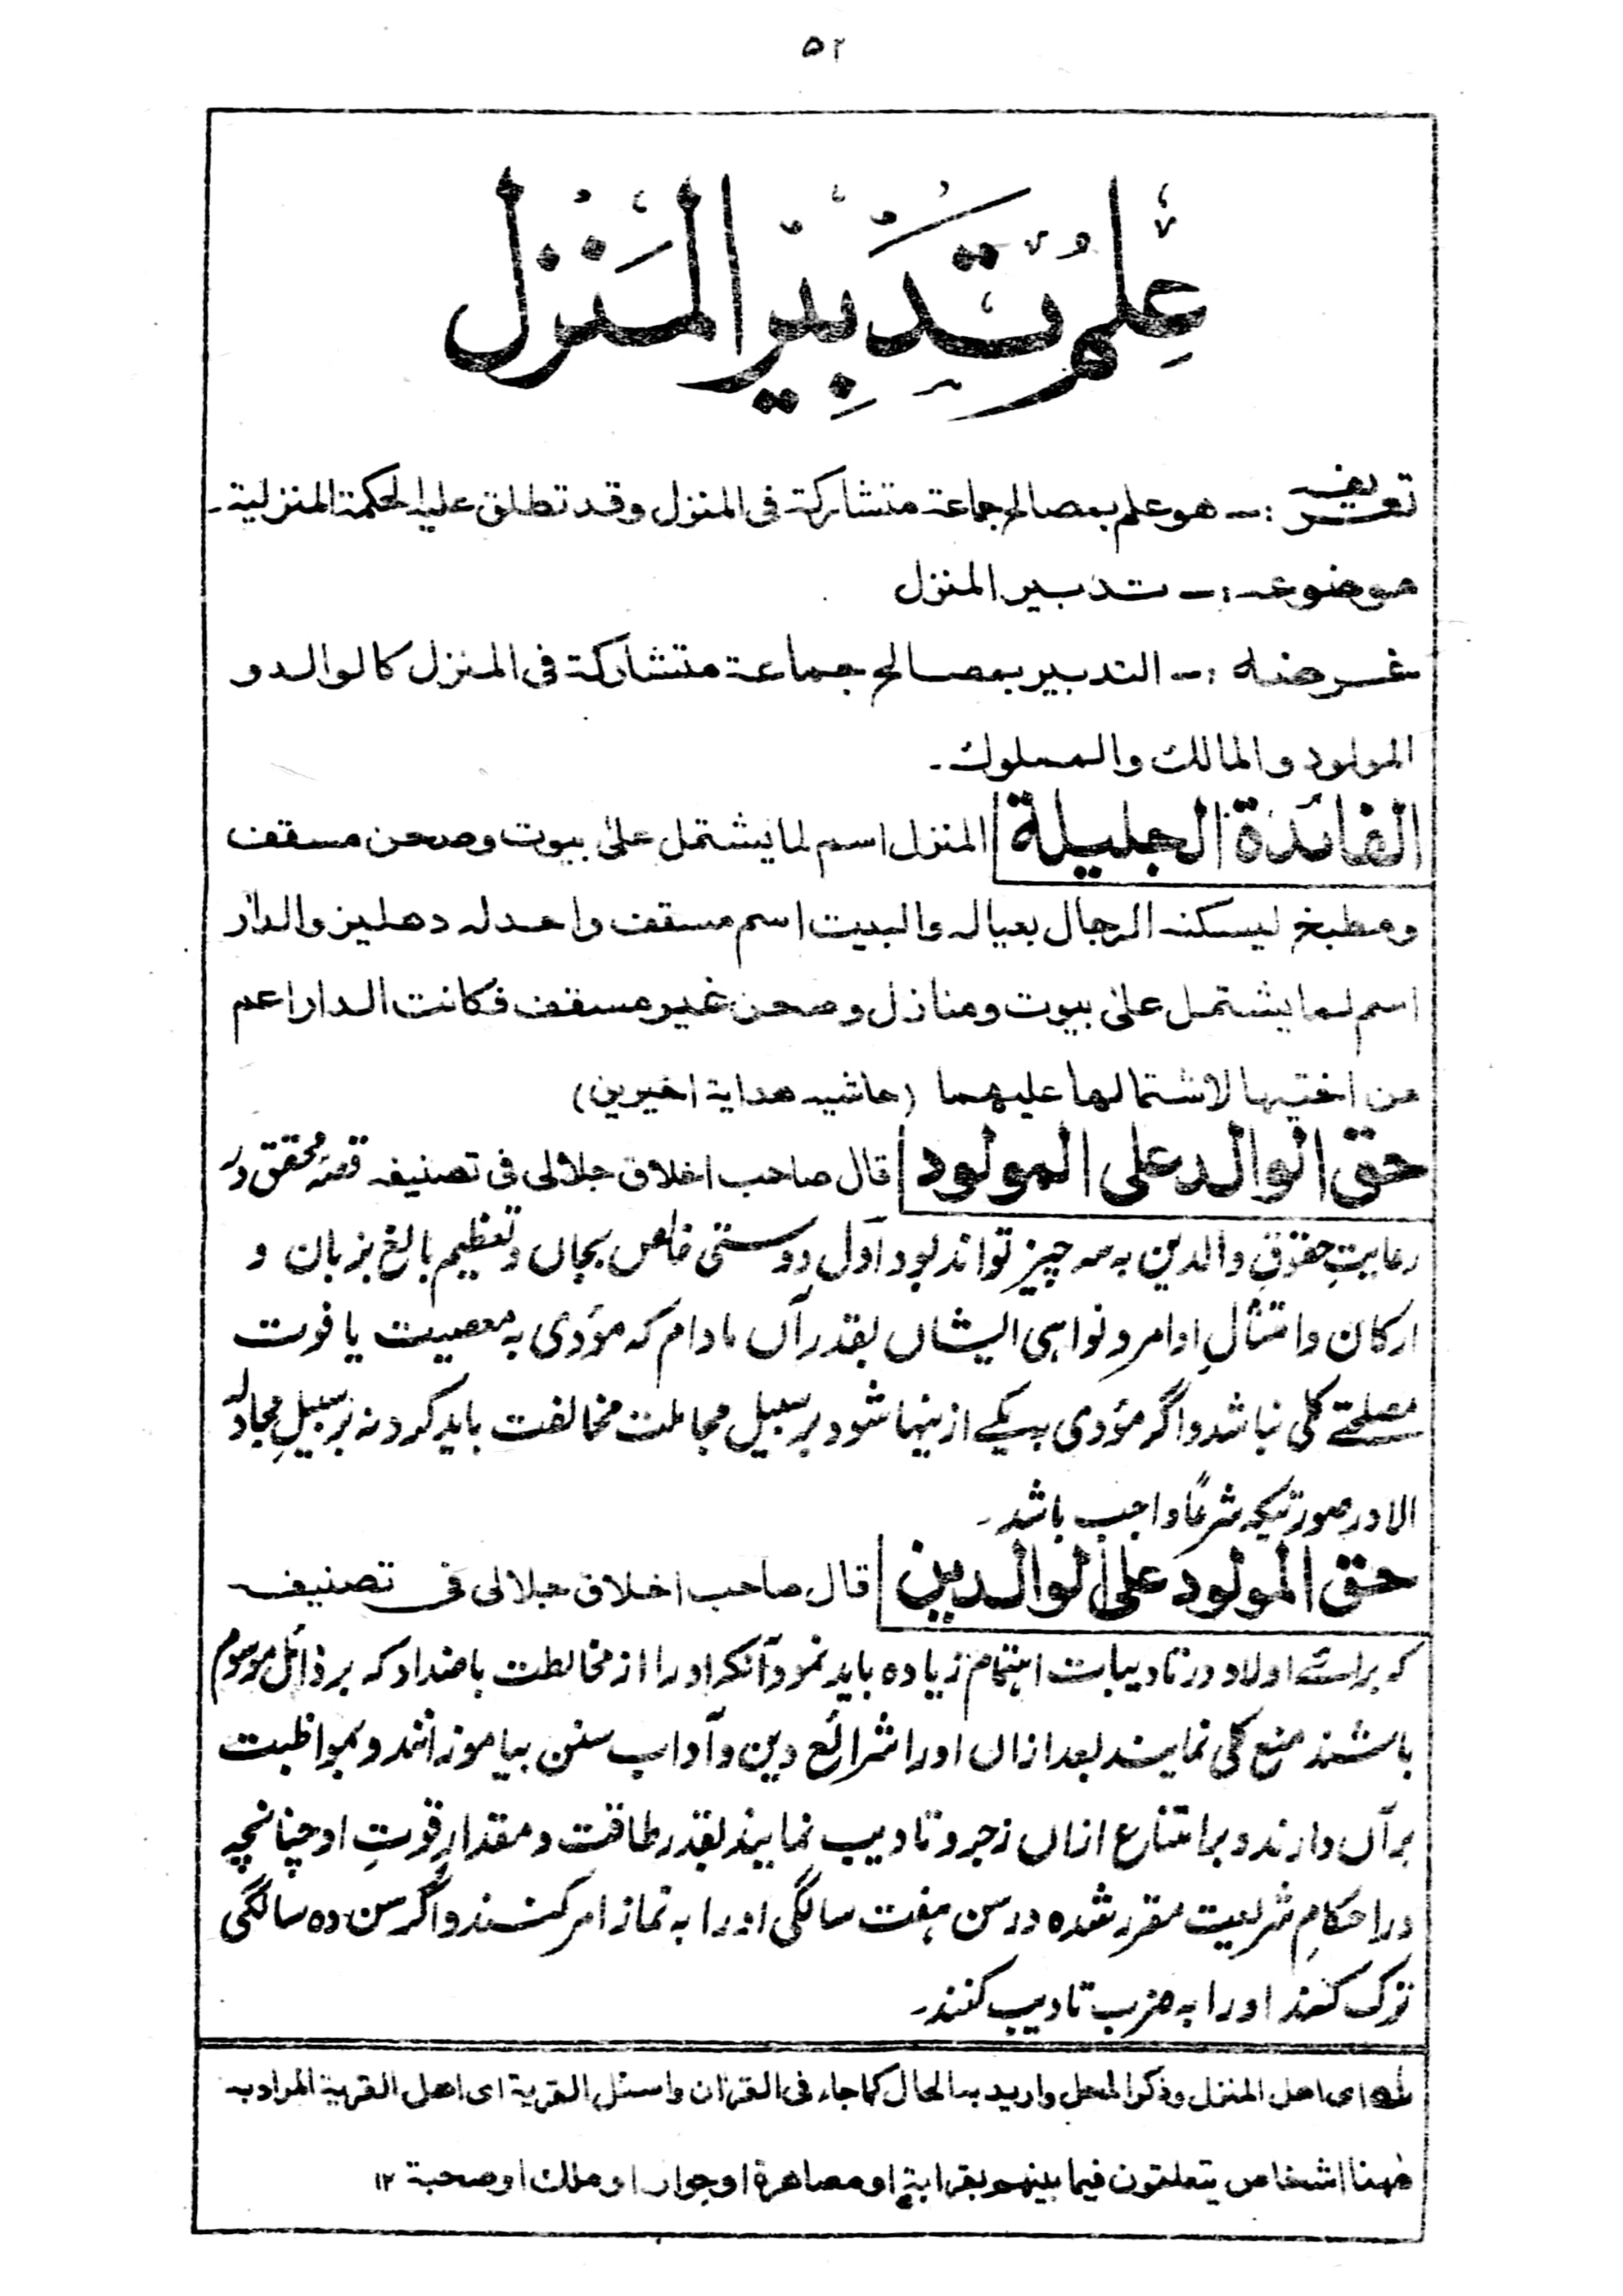 ۵۲
عِلمُ تَدبِیرِ المَنزِل
تعریفہ :۔ ھو علم بمصالح جماعۃ متشارکۃ فی المنزل وقد تطلق علیہ الحکمۃ المنزلیۃ۔
موضوعہ :۔ تدبیر المنزل
غرضہ :۔ التدبیر بمصالح جماعۃ متشارکۃ فی المنزل کالوالد و
المولود والمالک والمملوک۔
الفائدۃ الجلیلۃ المنزل اسم لما یشتمل علیٰ بیوت وصحن مسقف
ومطبخ لیسکنہ الرجال بعیالہ والبیت اسم مسقف واحد لہ دھلیز والدار
اسم لما یشتمل علیٰ بیوت ومنازل وصحن غیر مسقف فکانت الدار اعم
من اختیہا لاشتمالہا علیہما (حاشیہ ھدایۃ اخیرین)
حق الوالد علی المولود قال صاحب اخلاق جلالی فی تصنیفہ محقق در
رعایتِ حقوقِ والدین بہ سہ چیز تواند بود اول دوستی خالص بجاں وتعظیم بالغ بزبان و
ارکان وامتثالِ اوامر ونواہی ایشاں بقدر آں مادام کہ مؤدی بہ معصیت یا فوت
مصلحتے کلی نباشد واگر مؤدی بہ یکے ازینہا شود بر سبیل مجاملت مخالفت باید کرد نہ بر سبیلِ مجادلہ
الا در صورتیکہ شرعًا واجب باشد۔
حق المولود علی الوالدین قال صاحب اخلاق جلالی فی تصنیفہ
کہ برائے اولاد در تادیبات اہتمام زیادہ باید نمود آنکہ اورا از مخالطت باضداد کہ برذائل موسوم
باشند منع کلی نمایند بعد ازاں اورا شرائع دین وآداب سنن بیاموزانند وبمواظبت
برآں دارند وبر امتناع ازاں زجر وتادیب نمایند بقدر طاقت ومقدارِ قوتِ او چنانچہ
در احکامِ شریعت مقرر شدہ در سن ہفت سالگی اورا بہ نماز امر کنند واگر سن دہ سالگی
ترک کنند اورا بہ ضرب تادیب کنند۔
لہ ای اھل المنزل وذکر المحل وارید بہ الحال کما جاء فی القرآن واسئل القریۃ ای اھل القریۃ المراد بہ
ھٰہنا اشخاص یتعلقون فیما بینہم بقرابۃٍ او مصاھرۃ او جوار او ملک او صحبۃ ۱۲